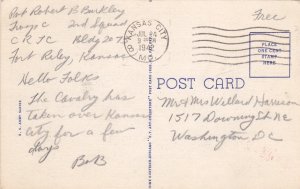 Pvt Robert B Burkley
Troop C 2nd Squad
C R T C Bldg 2077
Fort Riley, Kansas
Hello Folks
The Cavalry has
taken over Kansas
City for a few
days
Bob
KANSAS CITY
1942
MO.
Free
PLACE
ONE CENT
STAMP
HERE
POST CARD
Mr & Mrs Willard Harrison
1517 Downing St NE
Washington DC